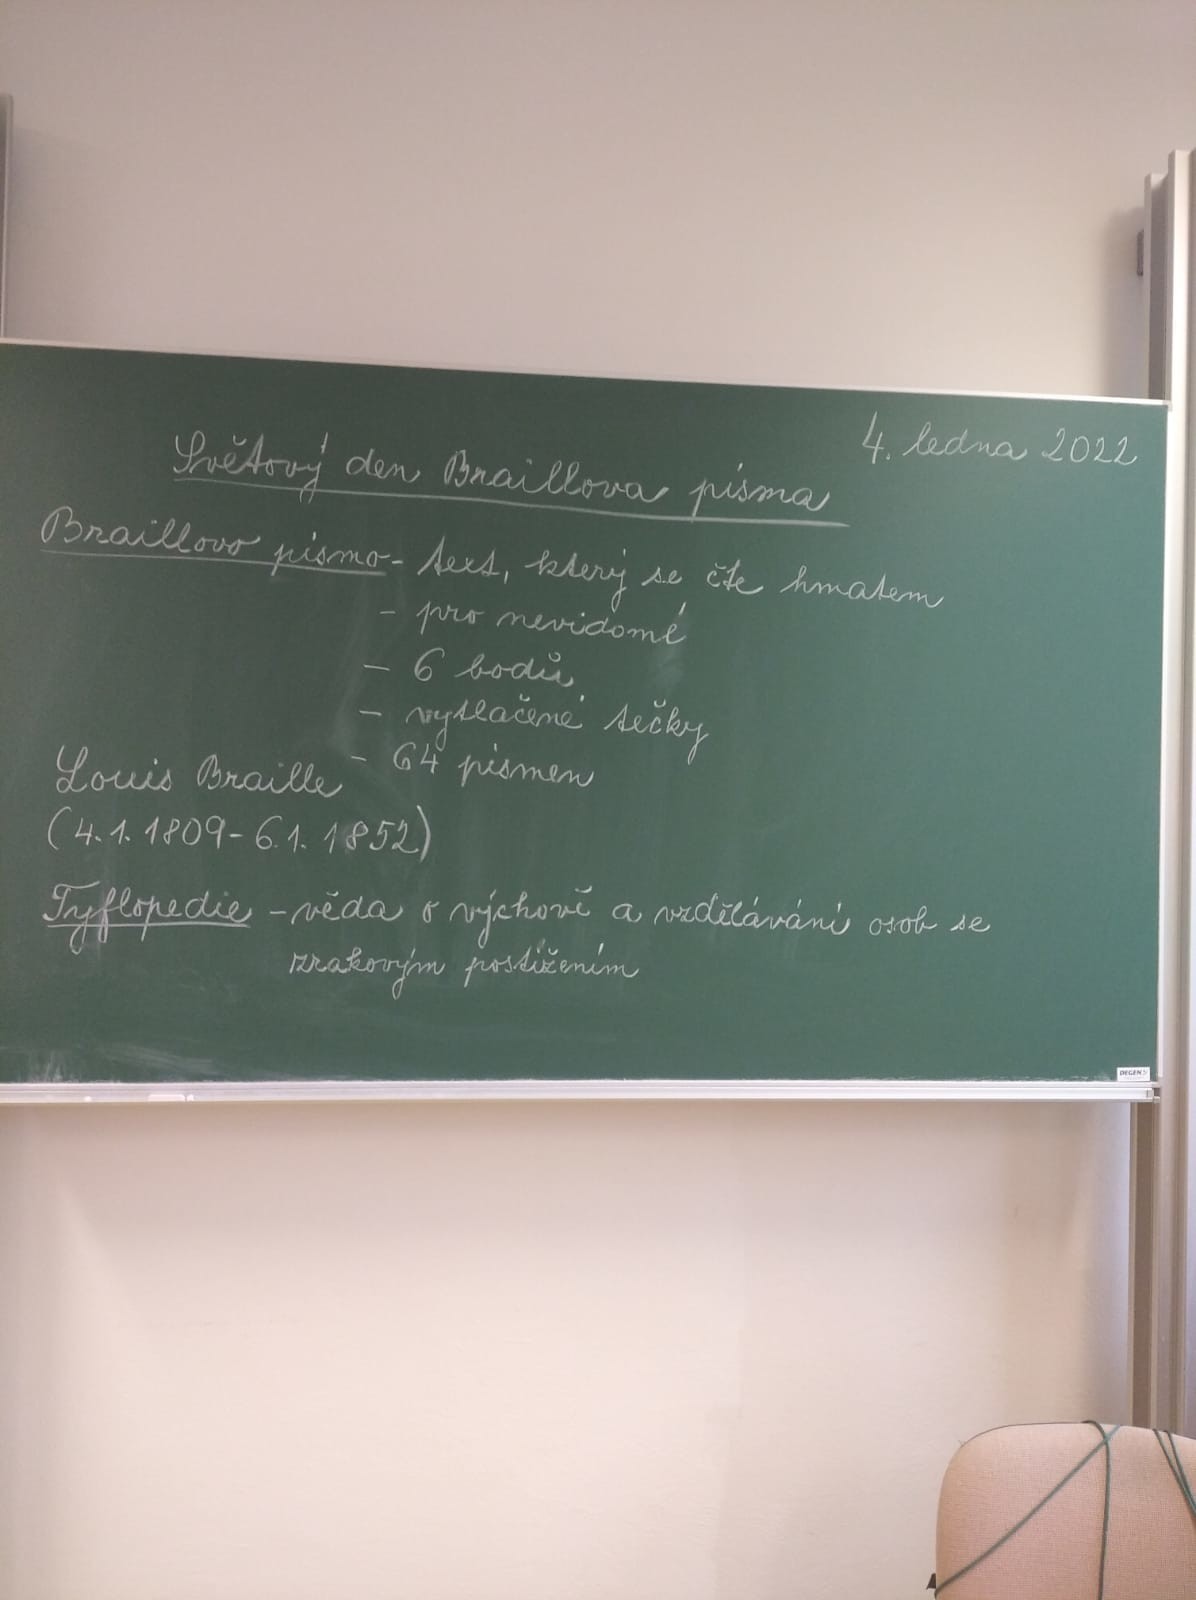 4. ledna 2022
Světový den Braillova písma
Braillovo písmo - text, který se čte hmatem
- pro nevidomé
- 6 bodů
- vytlačené tečky
- 64 písmen
Louis Braille
(4.1.1809-6.1.1852)
Tyflopedie - věda o výchově a vzdělávání osob se
zrakovým postižením
DEGEN